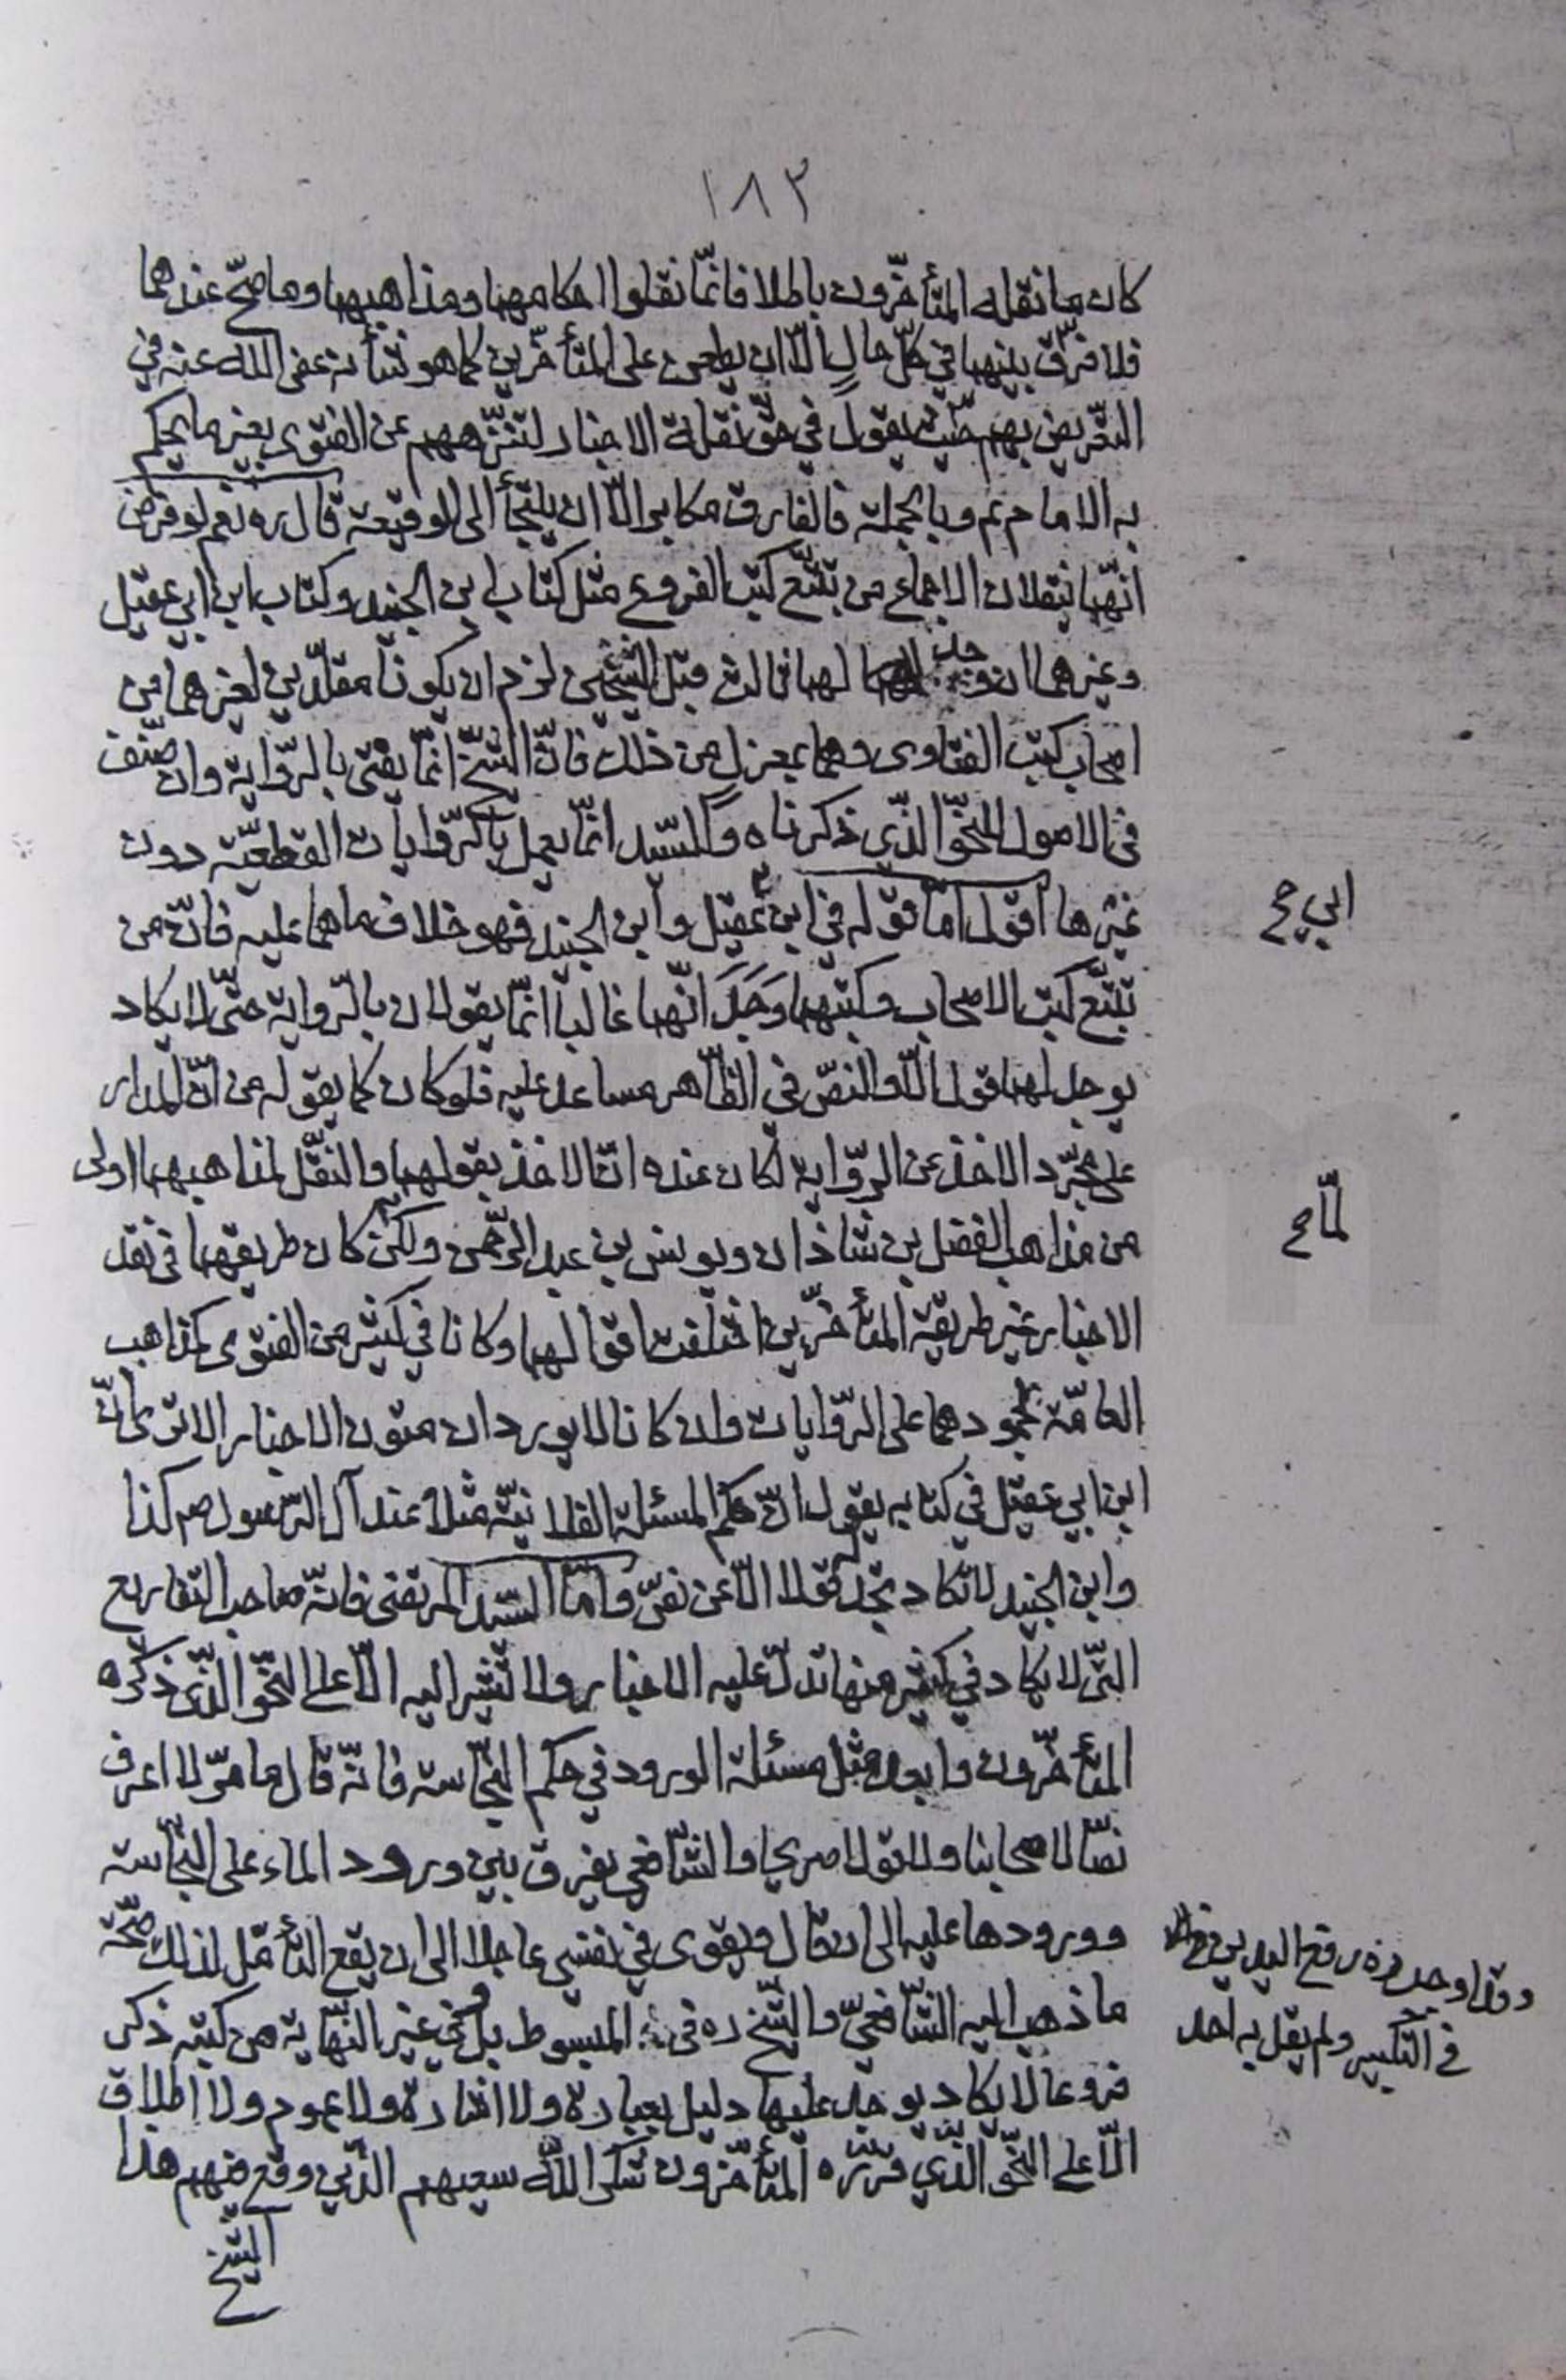 ١٨٣
كان ما نقله المتأخرون باطلا فانّما نقلوا احكامهما ومذاهبهما وما صحّ عندهما
فلا فرق بينهما في كلّ حال الّا ان يطعن على المتأخرين كما هو شأنه عفى اللّه عنه في
التعريض بهم حيث يقول في حقّ نقلة الاخبار لتنزّههم عن الفتوى بغير ما يحكم
به الامام عم وبالجملة فالفارق مكابر الّا ان يلتجأ الى الوقيعة قال ره نعم لو فرض
انّهما ينقلان الاجماع من تتبّع كتب الفروع مثل كتاب ابن الجنيد وكتاب ابن ابي عقيل
وغيرهما ان وجد لهما ثالث قبل الشيخين لزم ان يكونا مقلّدين لغيرهما من
اصحاب كتب الفتاوى وهما بمعزل من ذلك فانّ الشيخ انّما يفتى بالرّواية وان صنّف
في الاصول للنحو الذّي ذكرناه والسّيد انّما يعمل بالرّوايات القطعيّة دون
غيرها اقول امّا قوله في ابن عقيل وابن الجنيد فهو خلاف ما هما عليه فانّ من
ابي صح
تتبّع كتب الاصحاب وكتبهما وَجَدَ انّهما غالبا انّما يقولان بالرّواية حتّى لا يكاد
يوجد لهما قول الّا والنصّ في الظّاهر مساعد عليه فلو كان كما يقوله من انّ المدار
على مجرّد الاخذ عن الرّواية لكان عنده انّ الاخذ بقولهما والنقل لمذاهبهما اولى
من مذاهب الفضل بن شاذان ويونس بن عبد الرّحمن ولكن كان طريقهما في نقل
لمّا صح
الاخبار غير طريقة المتأخّرين اختلفت اقوالهما وكانا في كثير من الفتوى كمذاهب
العامّة لجمودهما على الرّوايات وان كانا لا يوردان متون الاخبار الا ترى انّ
ابن ابي عقيل في كتابه يقول انّ حكم المسئلة الفلانيّة مثلا عند آل الرّسول صم كذا
وابن الجنيد لا تكاد تجد له قولا الّا عن نصّ وامّا السّيد المرتضى فانّه صاحب التفاريع
التّى لا يكاد في كثير منها تدلّ عليه الاخبار ولا تشير اليه الّا على النّحو الّذى ذكره
المتأخّرون وابعد مثل مسئلة الورود في حكم النّجاسة فانّه قال ما مرّ لا اعرف
نصّا لاصحابنا ولا قولا صريحا والشّافعي يفرق بين ورود الماء على النّجاسة
وورودها عليه الى ان قال ويقوى في نفسي عاجلا الى ان يقع التأمّل لذلك صحّة
وقد اوجد ره رفع اليدين في
في التكبير ولم يقل به احد
ما ذهب اليه الشّافعيّ والشّيخ ره في المبسوط بل وفي غير النّهاية من كتبه ذكر
فروعا لا يكاد يوجد عليها دليل بعبارة ولا اشارة ولا عموم ولا اطلاق
الّا على النّحو الذّي قرّره المتأخّرون شكر اللّه سعيهم الذّين وقع فيهم هذا
الشيخ